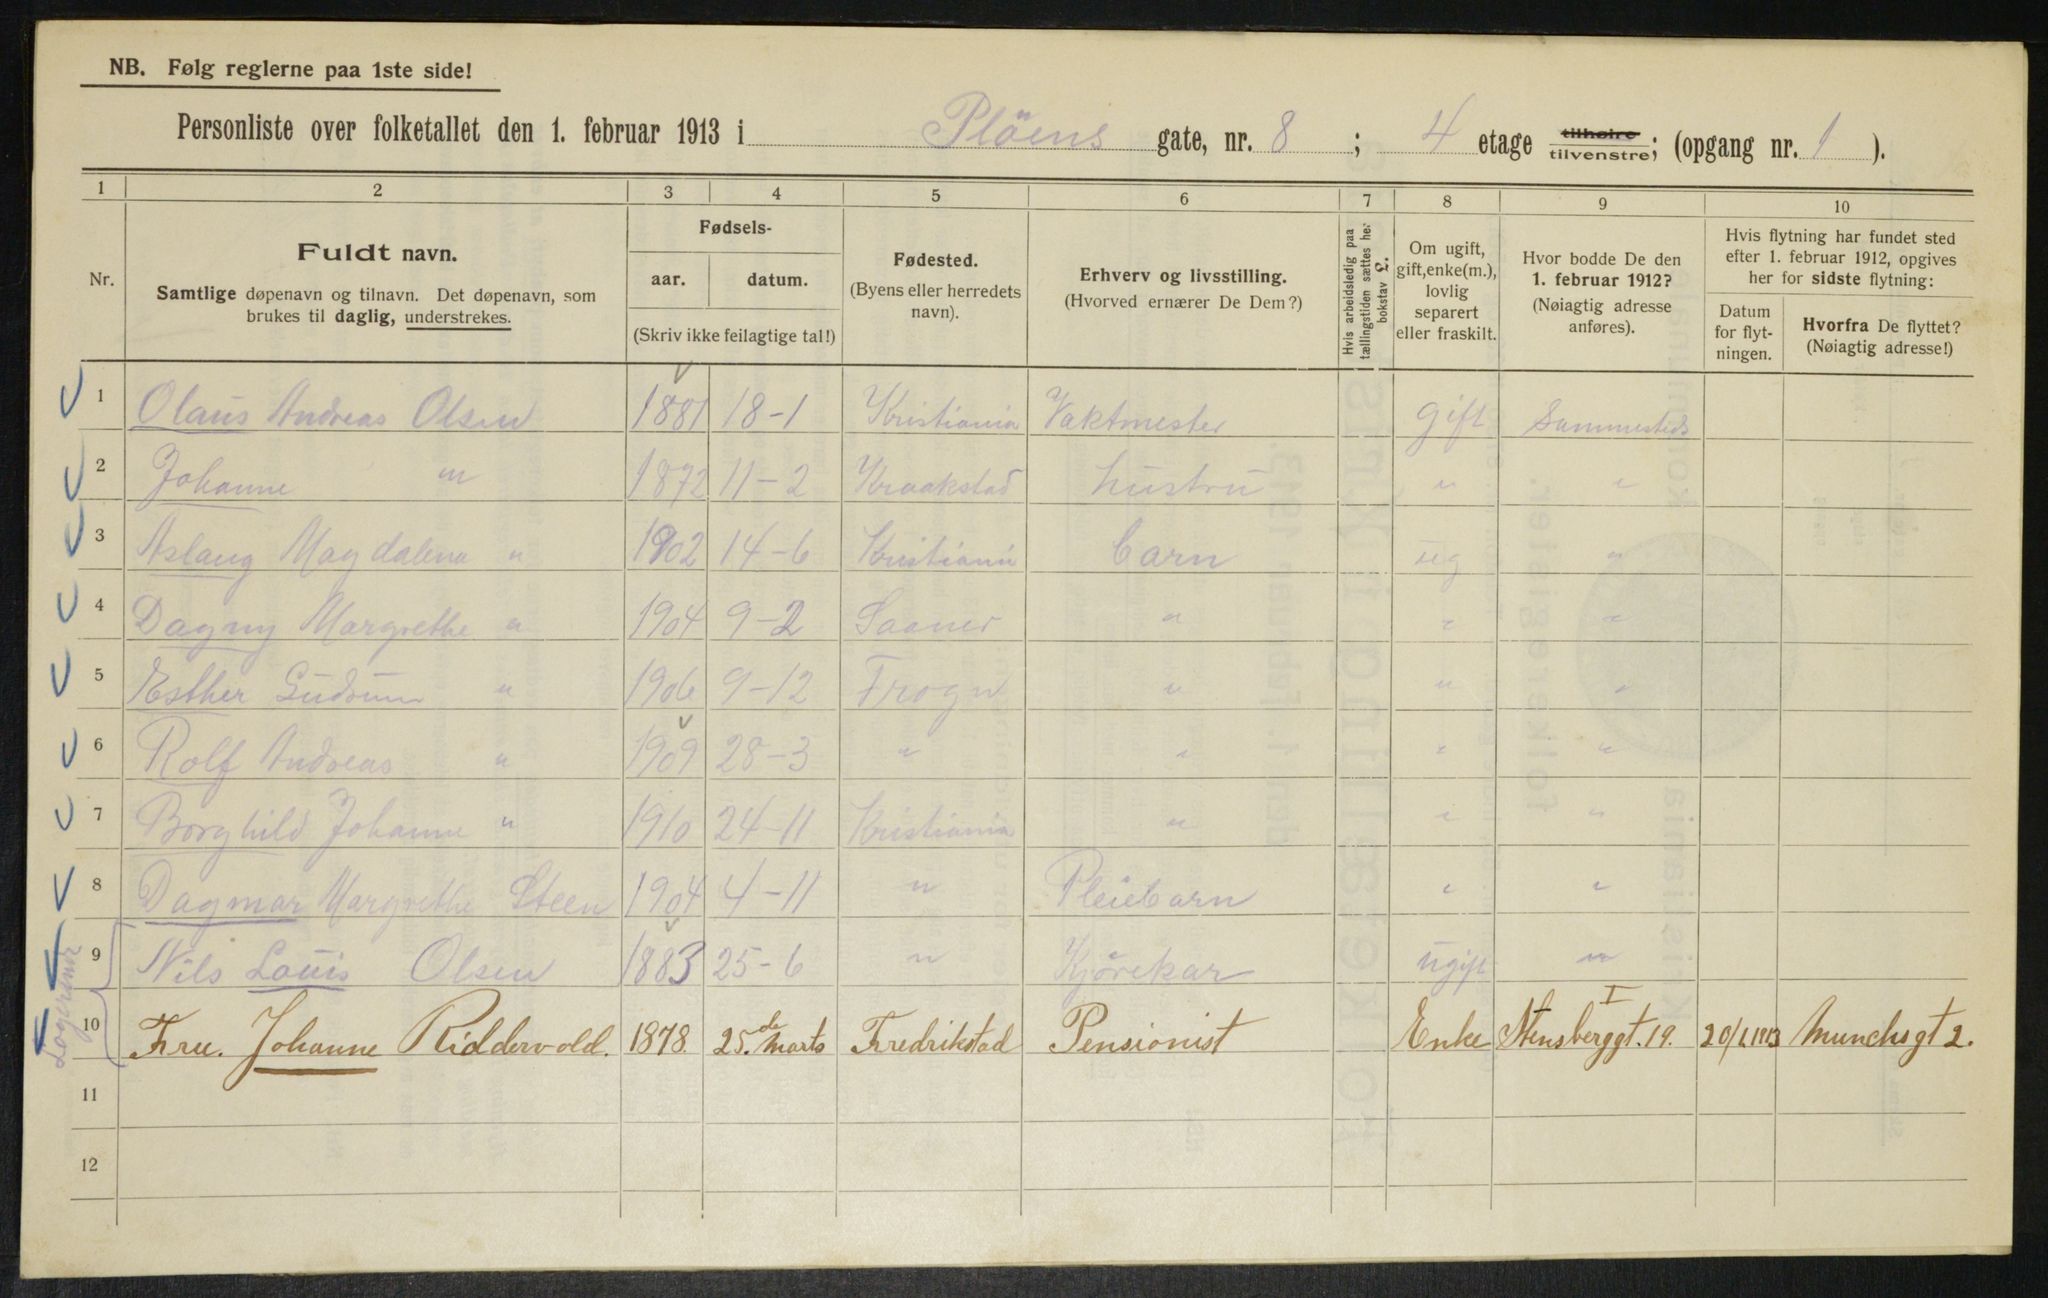 NB. Følg reglerne paa 1ste side!
Personliste over folketallet den 1. februar 1913 i Plöens gate, nr. 8 ; 4 etage tilhøire tilvenstre; (opgang nr. 1 ).
1 2 3 4 5 6 7 8 9 10
Nr.
Fuldt navn.
Samtlige døpenavn og tilnavn. Det døpenavn, som
brukes til daglig, understrekes.
Fødsels-
aar. datum.
(Skriv ikke feilagtige tal!)
Fødested.
(Byens eller herredets
navn).
Erhverv og livsstilling.
(Hvorved ernærer De Dem?)
Hvis arbeidsledig paa
tællingstiden sættes her
bokstav L.
Om ugift,
gift, enke(m.),
lovlig
separert
eller fraskilt.
Hvor bodde De den
1. februar 1912?
(Nøiagtig adresse
anføres).
Hvis flytning har fundet sted
efter 1. februar 1912, opgives
her for sidste flytning:
Datum
for flyt-
ningen.
Hvorfra De flyttet?
(Nøiagtig adresse!)
1 Olaus Andreas Olsen 1881 18-1 Kristiania Vaktmester gift Sammesteds
2 Johanne " 1872 11-2 Kraakstad hustru " "
3 Aslaug Magdalena " 1902 14-6 Kristiania barn ug "
4 Dagny Margrethe " 1904 9-2 Saaner " " "
5 Esther Gudrun " 1906 9-12 Frogn " " "
6 Rolf Andreas " 1909 28-3 " " " "
7 Borghild Johanne " 1910 24-11 Kristiania " " "
8 Dagmar Margrethe Steen 1904 4-11 " Pleiebarn " "
9 Nils Louis Olsen 1883 25-6 " Kjörekar ugift "
10 Fru. Johanne Riddervold. 1878. 25.de Marts Fredrikstad Pensionist Enke Stensberggt. 19. I 20/1 1913 Munchsgt 2.
Logerende
11
12